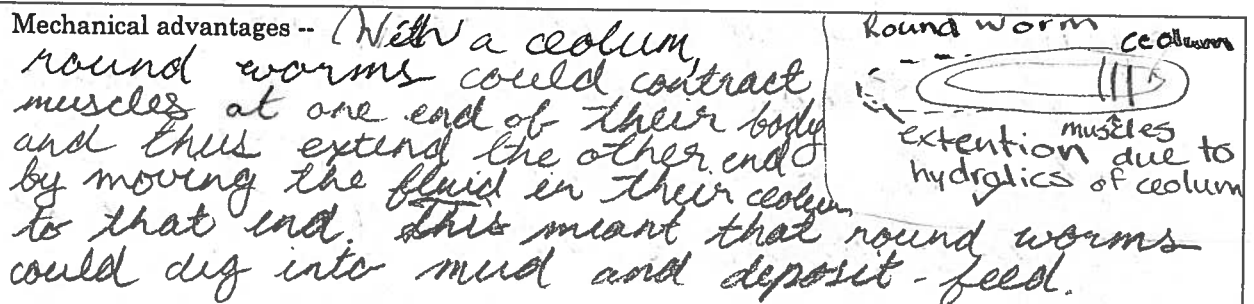 Mechanical advantages -- With a ceolum,
round worms could contract
muscles at one end of their body
and thus extend the other end
by moving the fluid in their ceolum
to that end. This meant that round worms
could dig into mud and deposit-feed.
Round worm
ceolum
muscles
extention due to
hydrolics of ceolum